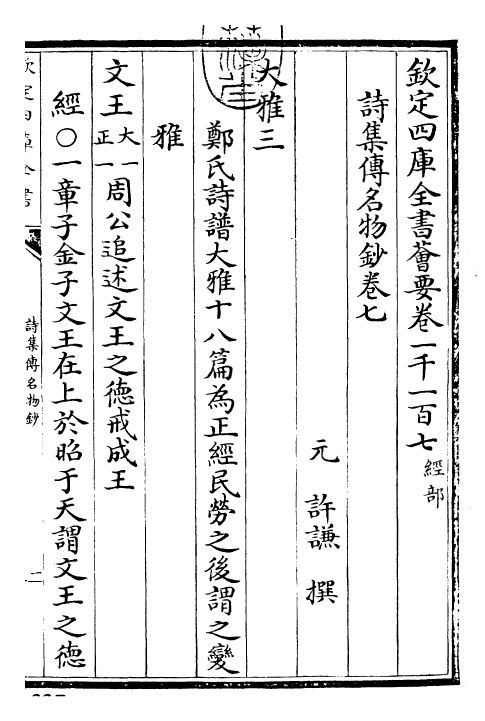 欽定四庫全書薈要卷一千一百七經部
詩集傳名物鈔卷七
元 許謙 撰
大雅三
鄭氏詩譜大雅十八篇為正經民勞之後謂之變
雅
文王大一正一周公追述文王之德戒成王
經○一章子金子文王在上於昭于天謂文王之德
欽定四庫全書
詩集傳名物鈔